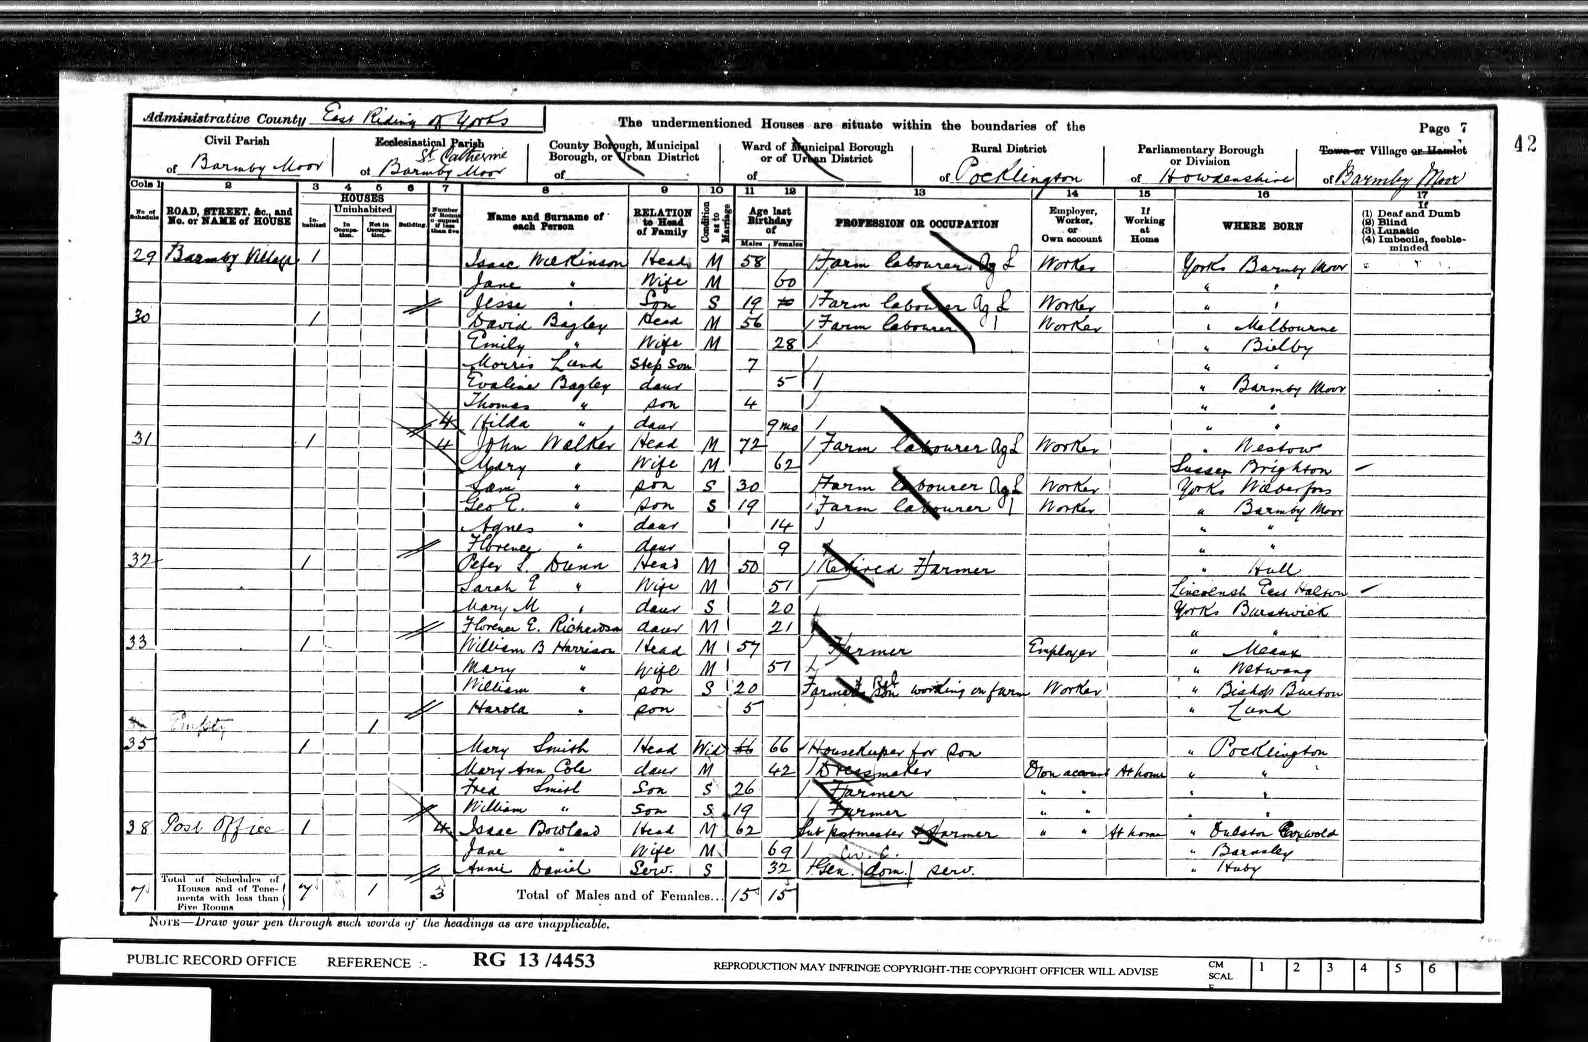 Administrative County East Riding of Yorks
The undermentioned Houses are situate within the boundaries of the
Page 7
42
Civil Parish of Barmby Moor
Ecclesiastical Parish of St Catherine Barmby Moor
County Borough, Municipal Borough, or Urban District of
Ward of Municipal Borough or of Urban District of
Rural District of Pocklington
Parliamentary Borough or Division of Howdenshire
Town or Village or Hamlet of Barmby Moor
Cols 1 2 3 4 5 6 7 8 9 10 11 12 13 14 15 16 17
No. of Schedule
ROAD, STREET, &c., and No. or NAME of HOUSE
HOUSES
Inhabited
Uninhabited
In Occupation.
Not in Occupation.
Building.
Number of Rooms occupied if less than five
Name and Surname of each Person
RELATION to Head of Family
Condition as to Marriage
Age last Birthday of
Males Females
PROFESSION OR OCCUPATION
Employer, Worker, or Own account
If Working at Home
WHERE BORN
If (1) Deaf and Dumb (2) Blind (3) Lunatic (4) Imbecile, feeble-minded
29 Barmby Village 1 Isaac Wilkinson Head M 58 Farm labourer Ag L Worker Yorks Barmby Moor
Jane " Wife M 60 " "
Jesse " Son S 19 Farm labourer Ag L Worker " "
30 1 David Bagley Head M 56 Farm labourer Worker " Melbourne
Emily " Wife M 28 " Bielby
Morris Land Step Son 7 " "
Evaline Bagley daur 5 " Barmby Moor
Thomas " son 4 " "
4 Hilda " daur 9 mo " "
31 1 4 John Walker Head M 72 Farm labourer Ag L Worker " Westow
Mary " Wife M 62 Sussex Brighton
Sam " son S 30 Farm labourer Ag L Worker Yorks Wilberfoss
Geo E. " son S 19 Farm labourer Worker " Barmby Moor
Agnes " daur 14 " "
Florence " daur 9 " "
32 1 Peter S. Dunn Head M 50 Retired Farmer " Hull
Sarah E " Wife M 51 Lincolnsh East Halton
Mary M " daur S 20 Yorks Burstwick
Florence E. Richardson daur M 21 " "
33 1 William B Harrison Head M 57 Farmer Employer " Meaux
Mary " Wife M 51 " Wetwang
William " son S 20 Farmer's Son working on farm Worker " Bishop Burton
Harold " son 5 " Lund
Empty 1
35 1 Mary Smith Head Wid 66 66 Housekeeper for son " Pocklington
Mary Ann Cole daur M 42 Dressmaker Own account At home " "
Fred Smith Son S 26 Farmer " " " "
William " Son S 19 Farmer " " " "
38 Post Office 1 4 Isaac Bowland Head M 62 Sub postmaster & farmer " " At home " Oulston Coxwold
Jane " Wife M 69 " Barnsley
Annie Daniel Serv. S 32 Gen. dom. serv. " Huby
7 Total of Schedules of Houses and of Tenements with less than Five Rooms 7 1 3 Total of Males and of Females... 15 15
NOTE—Draw your pen through such words of the headings as are inapplicable.
PUBLIC RECORD OFFICE REFERENCE :- RG 13 /4453 REPRODUCTION MAY INFRINGE COPYRIGHT-THE COPYRIGHT OFFICER WILL ADVISE
CM SCALE 1 2 3 4 5 6